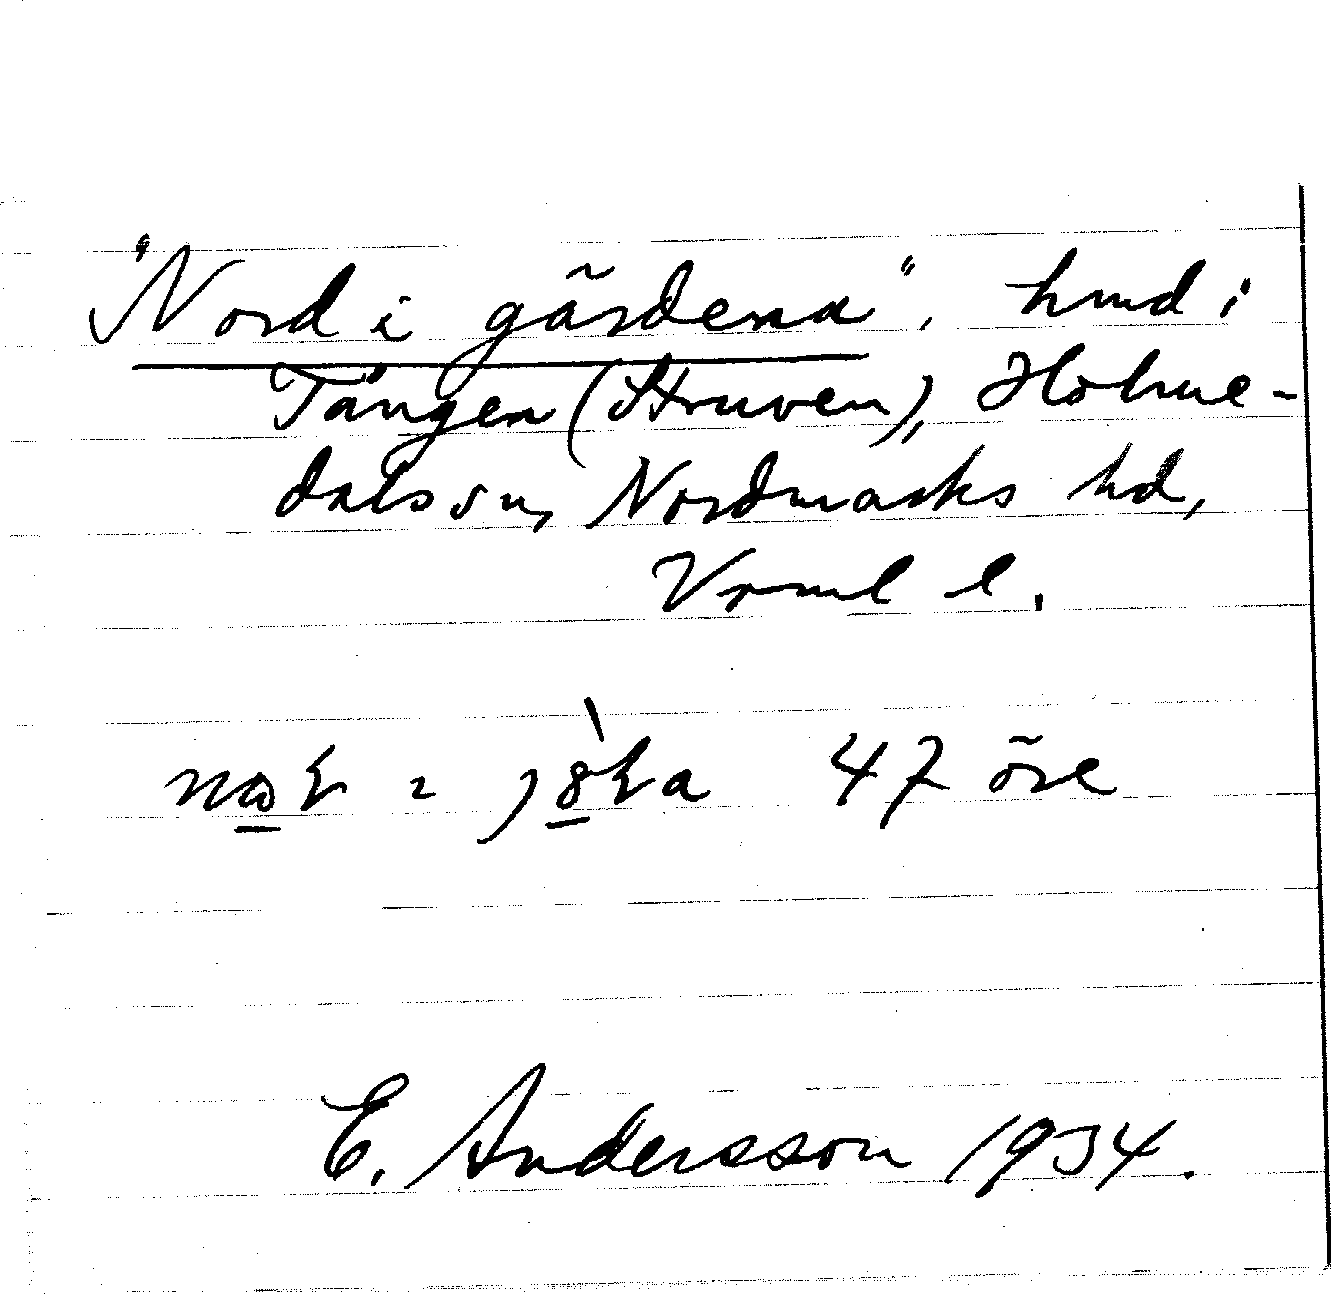 "Nord i gärdena", hmd i
Tången (Struven), Holme-
dals sn, Nordmarks hd,
Vrml l.
47 öre
E. Andersson 1934.